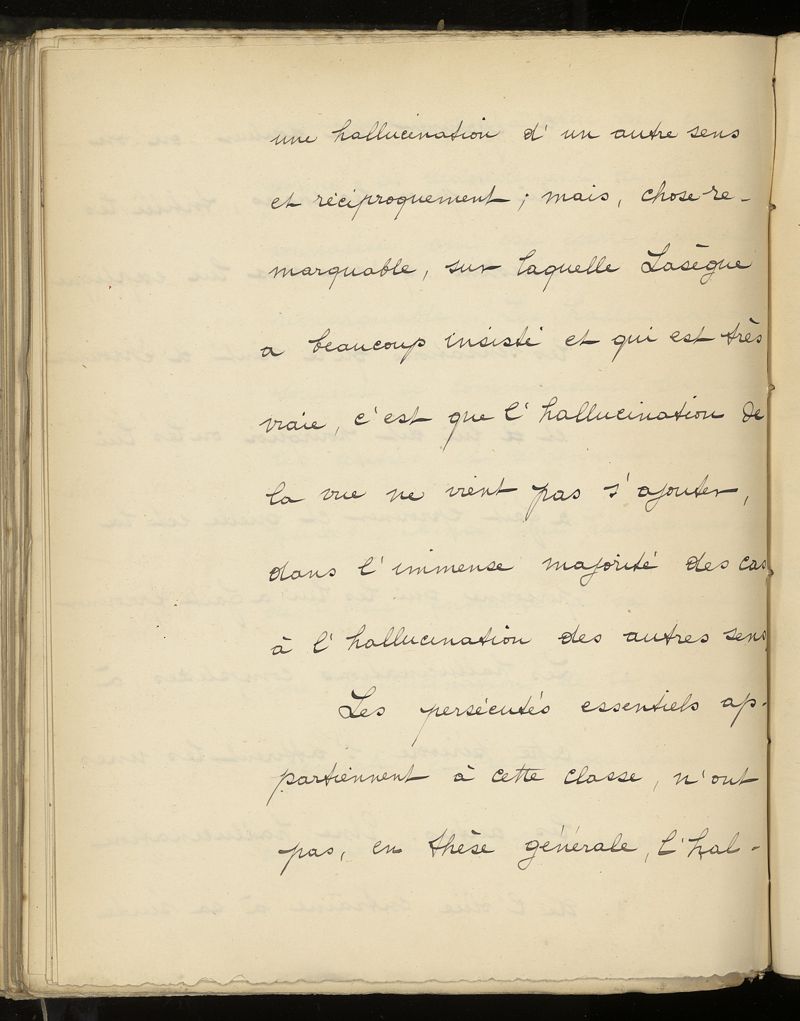 une hallucination d'un autre sens
et réciproquement ; mais, chose re-
marquable, sur laquelle Lasègue
a beaucoup insisté et qui est très
vraie, c'est que l'hallucination de
la vue ne vient pas s'ajouter,
dans l'immense majorité des cas
à l'hallucination des autres sens
Les persécutés essentiels ap-
partiennent à cette classe, n'ont
pas, en thèse générale, l'hal-